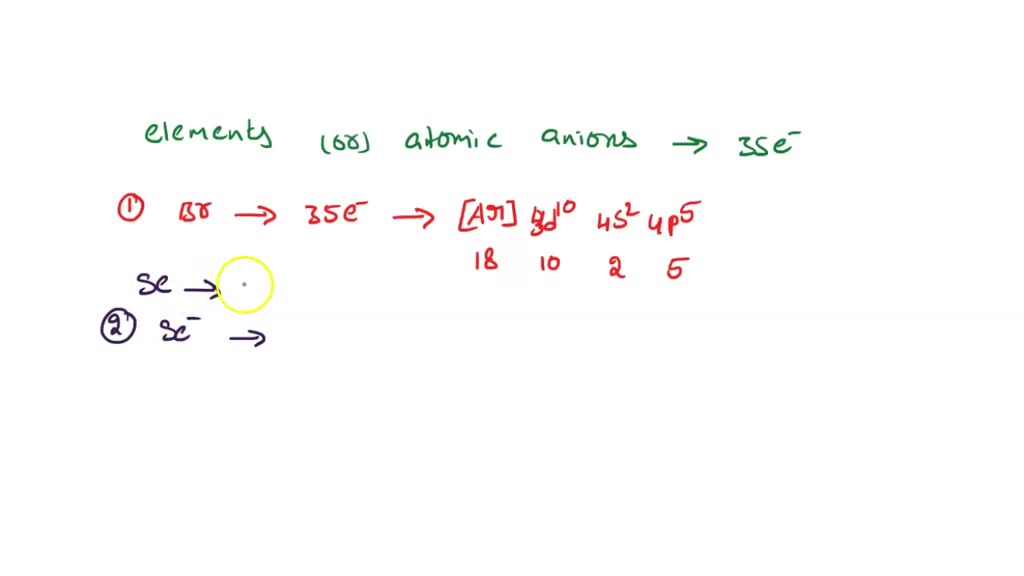 elements (or) atomic anions → 35e⁻
① Br → 35e⁻ → [Ar] 3d¹⁰ 4s² 4p⁵
18 10 2 5
Se →
② Se⁻ →